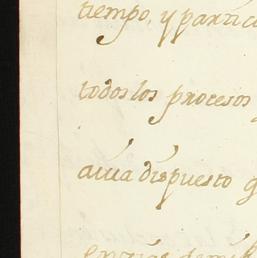 tiempo, y partic
todos los procesos
auia dispuesto q